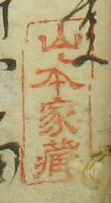 山本家藏